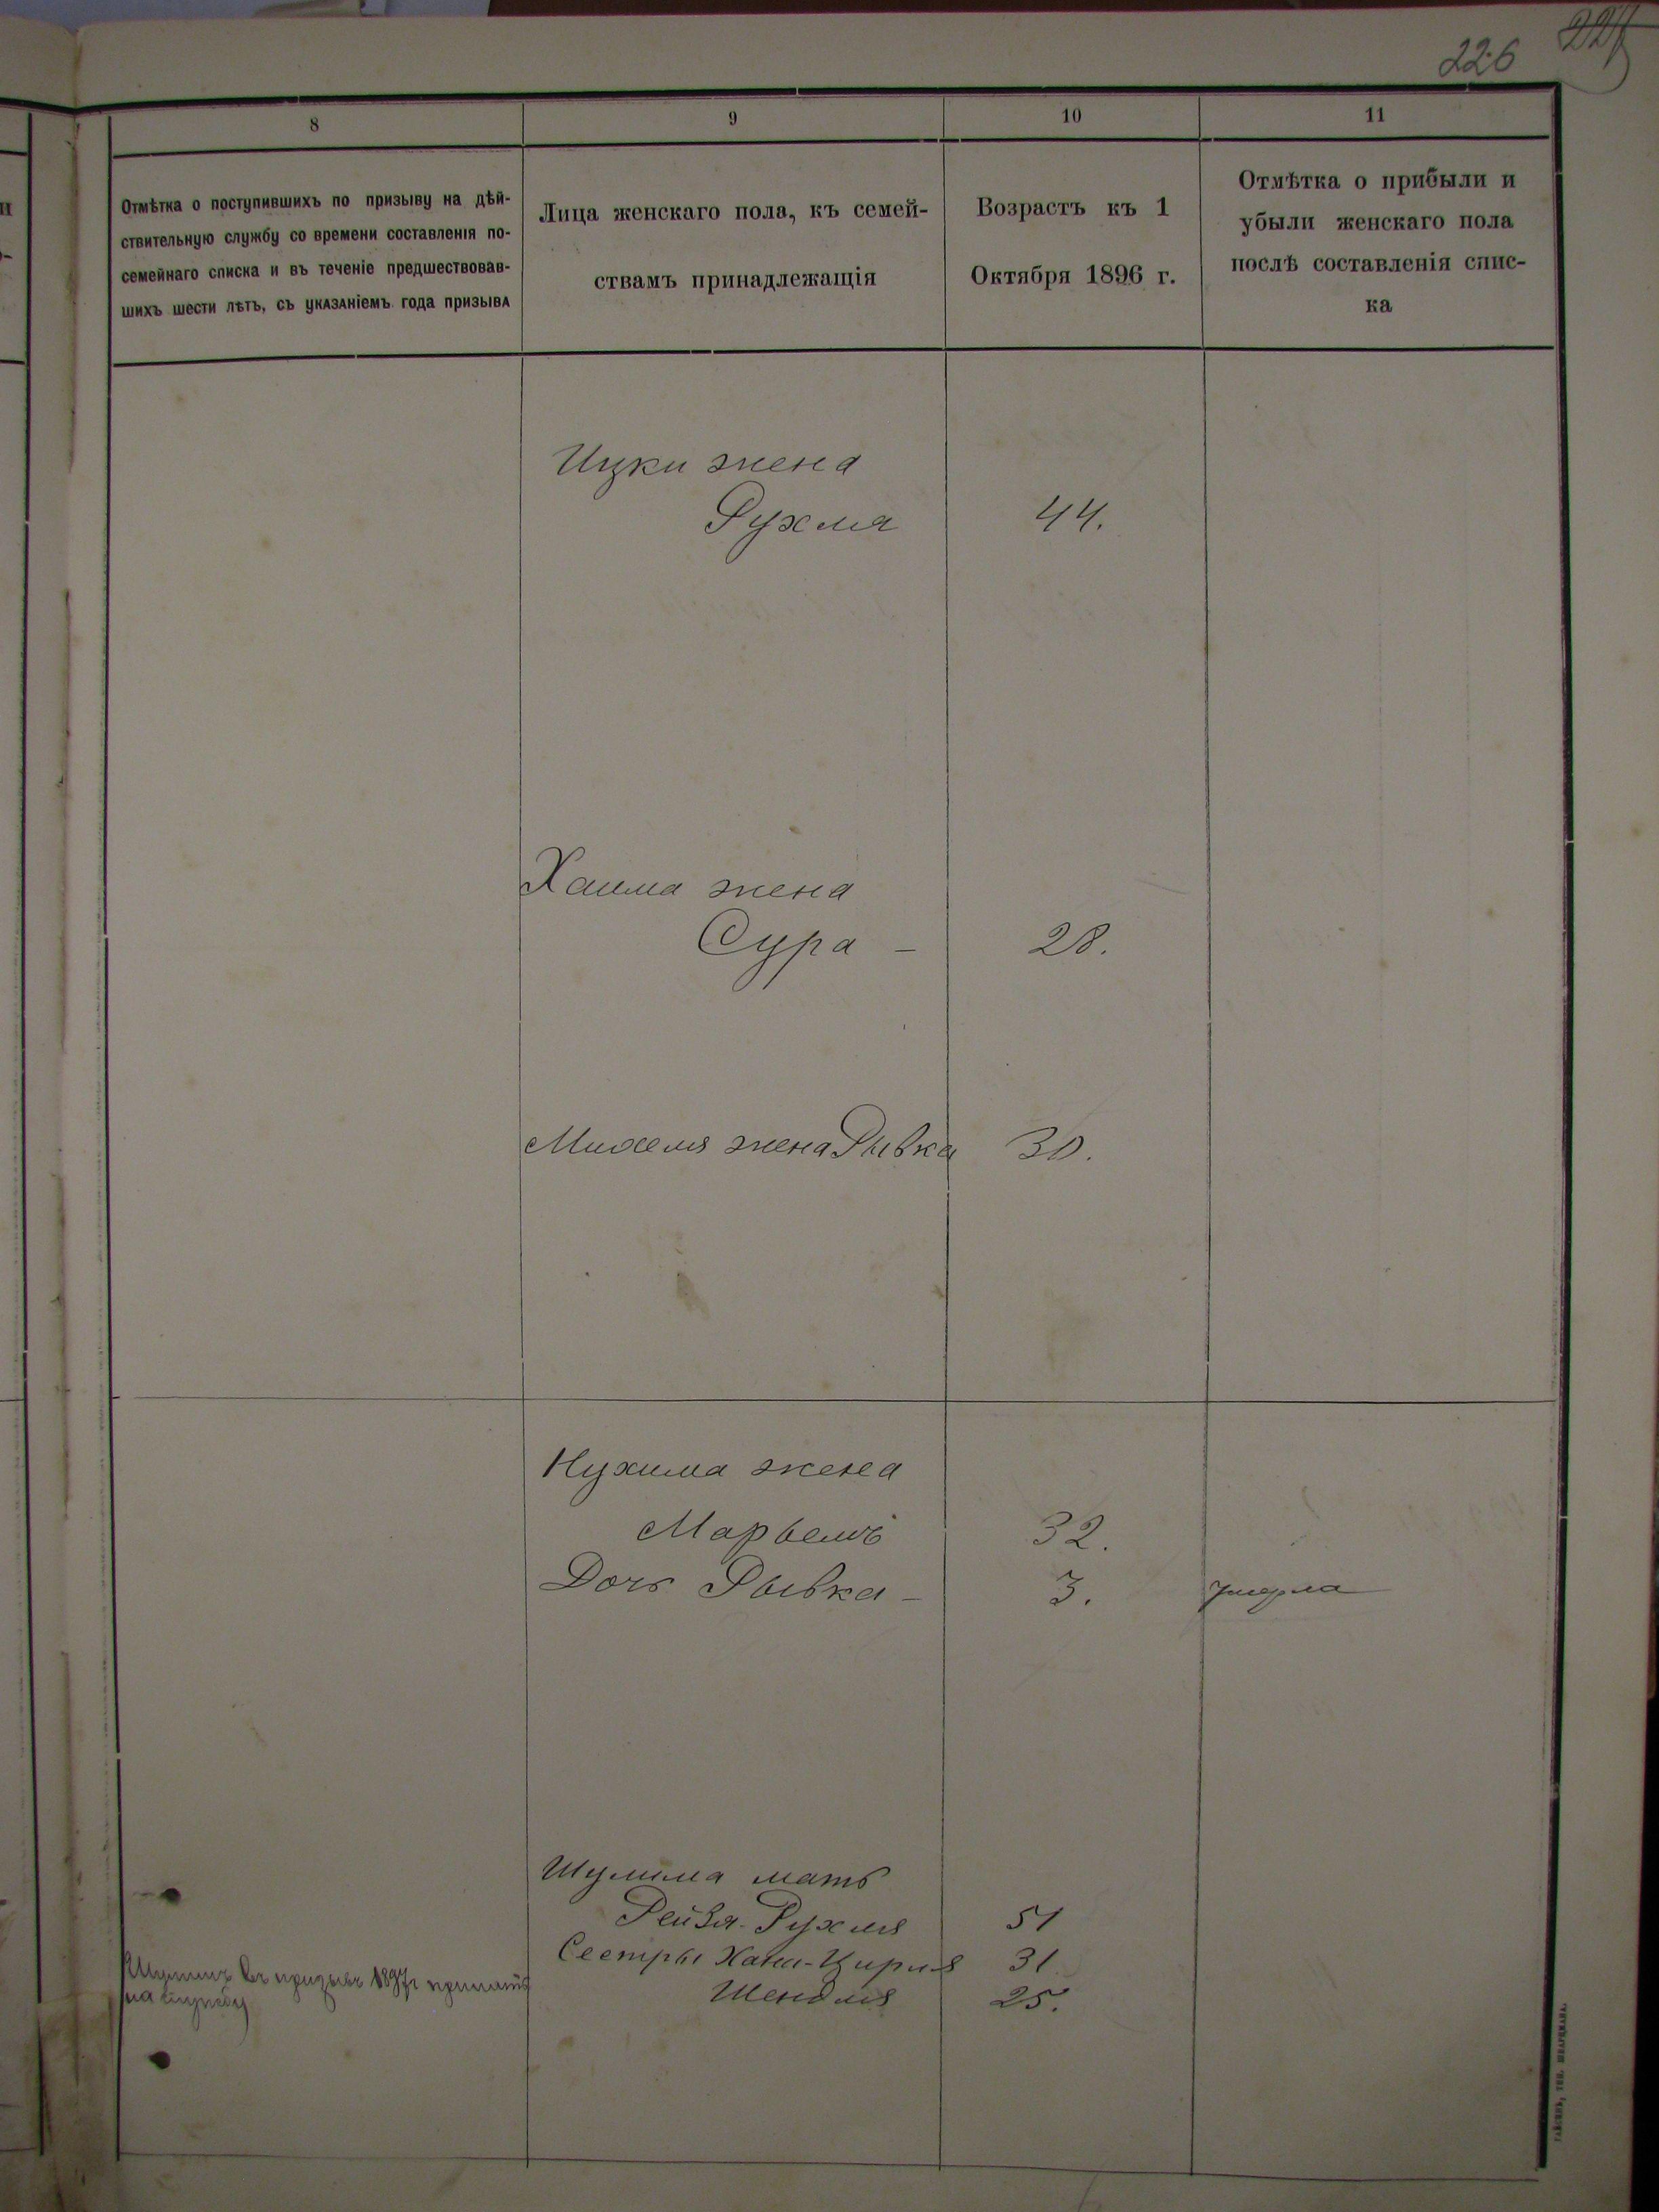 226
227
8
9
10
11
Отмѣтка о поступившихъ по призыву на дѣй-
ствительную службу со времени составленія по-
семейнаго списка и въ теченіе предшествовав-
шихъ шести лѣтъ, съ указаніемъ года призыва
Лица женскаго пола, къ семей-
ствамъ принадлежащія
Возрастъ къ 1
Октября 1896 г.
Отмѣтка о прибыли и
убыли женскаго пола
послѣ составленія спис-
ка
Ицки жена
Рухля 44.
Хаима жена
Сура – 28.
Михеля жена Рывка 30.
Нухима жена
Марьемъ 32.
Дочь Рывка – 3. умерла
Шулима мать
Рейзя-Рухля 51
Сестры Хана-Цирля 31
Шендля 25.
Шулимъ въ призывъ 1897г принятъ
на службу
Гайсинъ, тип. Шварцмана.